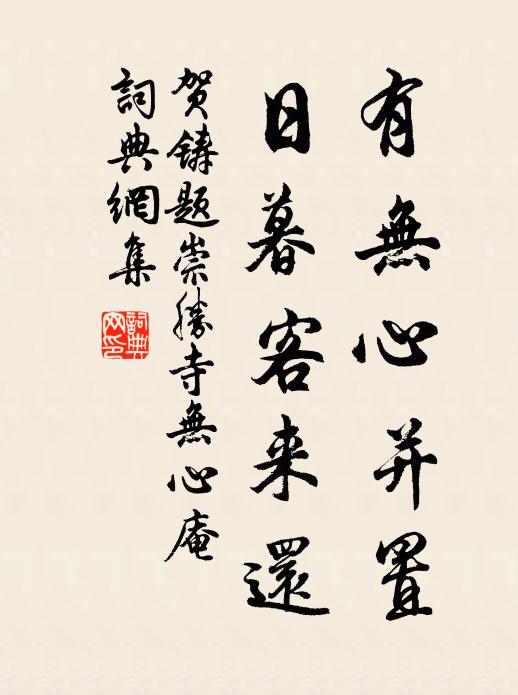 有無心并置
日暮客来還
贺鋳题崇勝寺無心庵
詞典網集
詞典網印